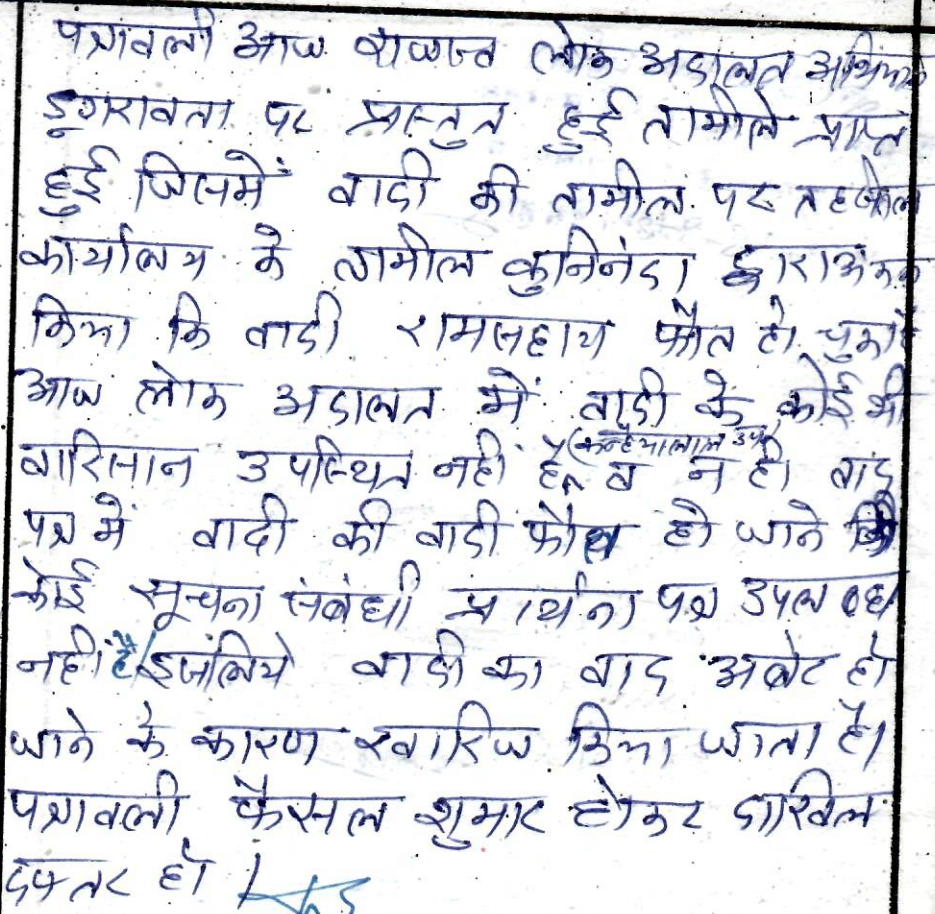 पत्रावली आज राजस्व लोक अदालत अभियान
डूगरावता पर प्रस्तुत हुई तामीले प्राप्त
हुई जिसमें वादी की तामील पर तहसील
कार्यालय के तामील कुनिनंदा द्वारा अंकन
किया कि वादी रामसहाय फौत हो चुका है
आज लोक अदालत में वादी के कोई भी
वारिसान उपस्थित नहीं है (कन्हैयालाल उप) व न ही वाद
पत्र में वादी की वादी फौत हो जाने कि
कोई सूचना संबंधी प्रार्थना पत्र उपलब्ध
नहीं है इसलिये वादी का वाद अबेट हो
जाने के कारण खारिज किया जाता है।
पत्रावली फैसल शुमार होकर दाखिल
दफ्तर हो।